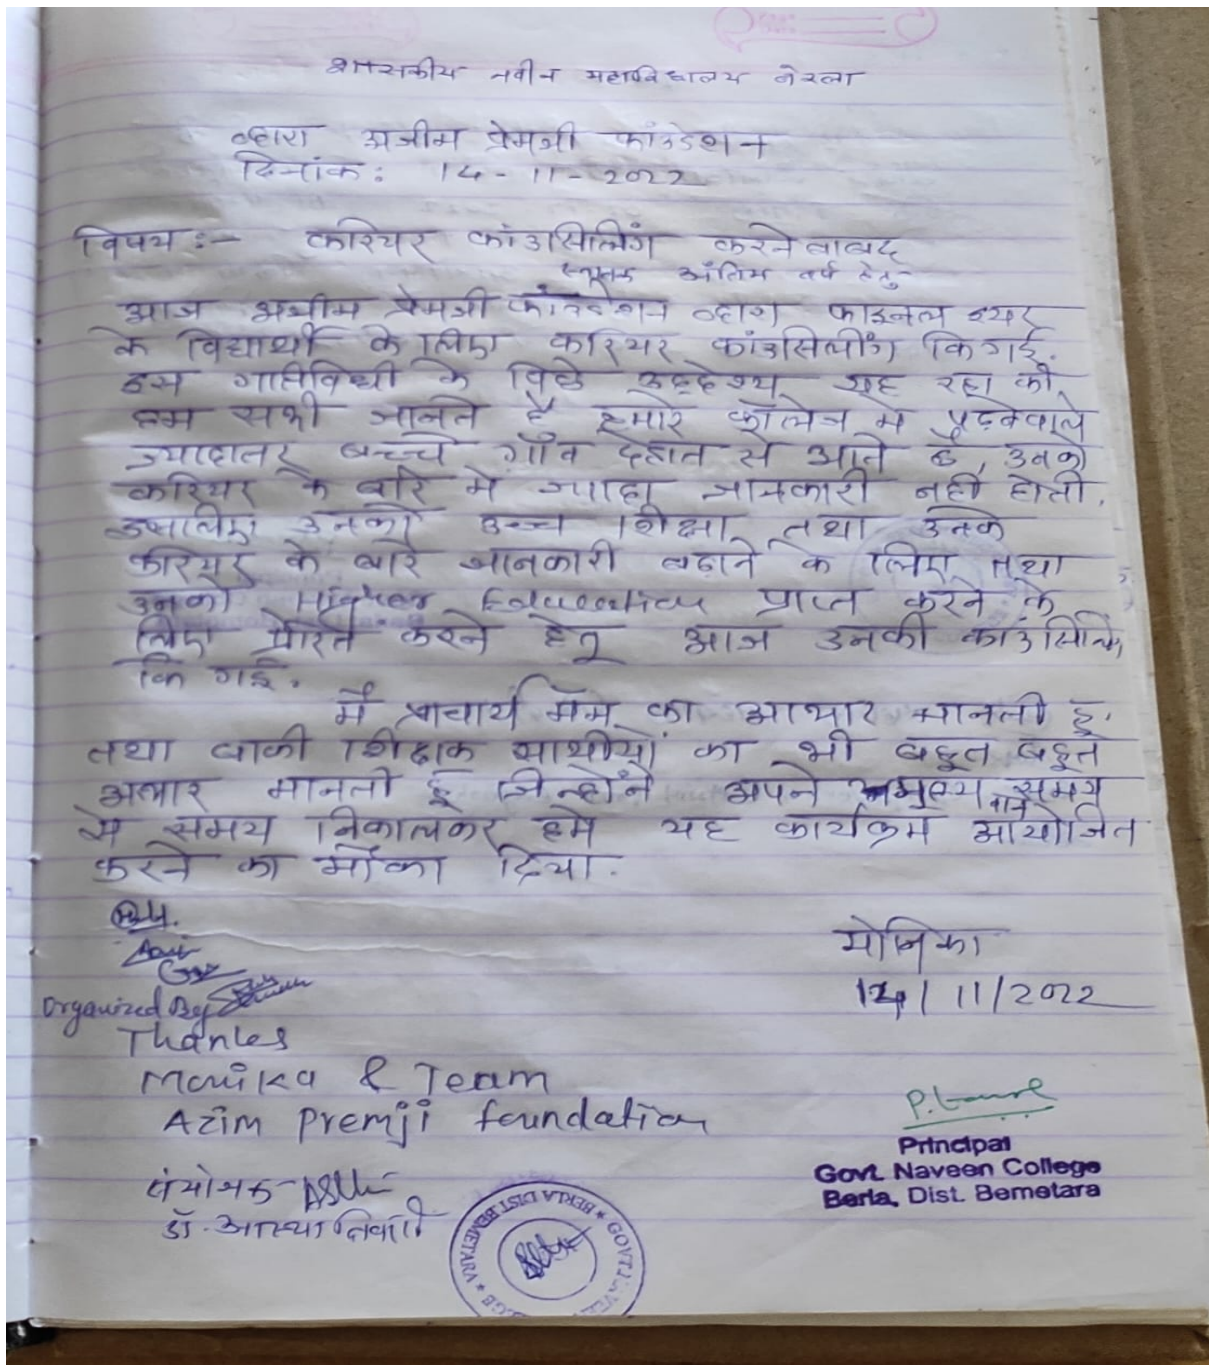 शासकीय नवीन महाविद्यालय बेरला
व्दारा अजीम प्रेमजी फांउडेशन
दिनांक: 14-11-2022
विषय :- करियर कांउसिलिंग करने बाबद्
स्नातक अंतिम वर्ष हेतु-
आज अजीम प्रेमजी फांउडेशन व्दारा फाइनल इयर
के विद्यार्थी के लिए करियर कांउसिलींग कि गई.
इस गतिविधी के पिछे उद्देश्य यह रहा की
हम सभी जानते है हमारे कॉलेज मे पढ़नेवाले
ज्यादातर बच्चे गाँव देहात से आते है, उनको
करियर के बारे मे ज्यादा जानकारी नही होती.
इसलिए उनको उच्च शिक्षा तथा उनके
करियर के बारे जानकारी बढ़ाने के लिए तथा
उनको Higher Education प्राप्त करने के
लिए प्रेरित करने हेतू आज उनकी कांउसिलिं
कि गई.
मैं प्राचार्य मॅम का आभार मानती हू.
तथा बाकी शिक्षक साथीयों का भी बहूत बहूत
आभार मानती हूँ जिन्होंने अपने अमुल्य समय
मे समय निकालकर हमे यह कार्यक्रम आयोजित
करने का मौका दिया.
मोनिका
14/11/2022
Organized By
Thanks
Monika & Team
Azim Premji foundation
Principal
Govt. Naveen College
Berla, Dist. Bemetara
संयोजक-
डॉ. आस्था तिवारी
BERLA DIST. BEMETARA